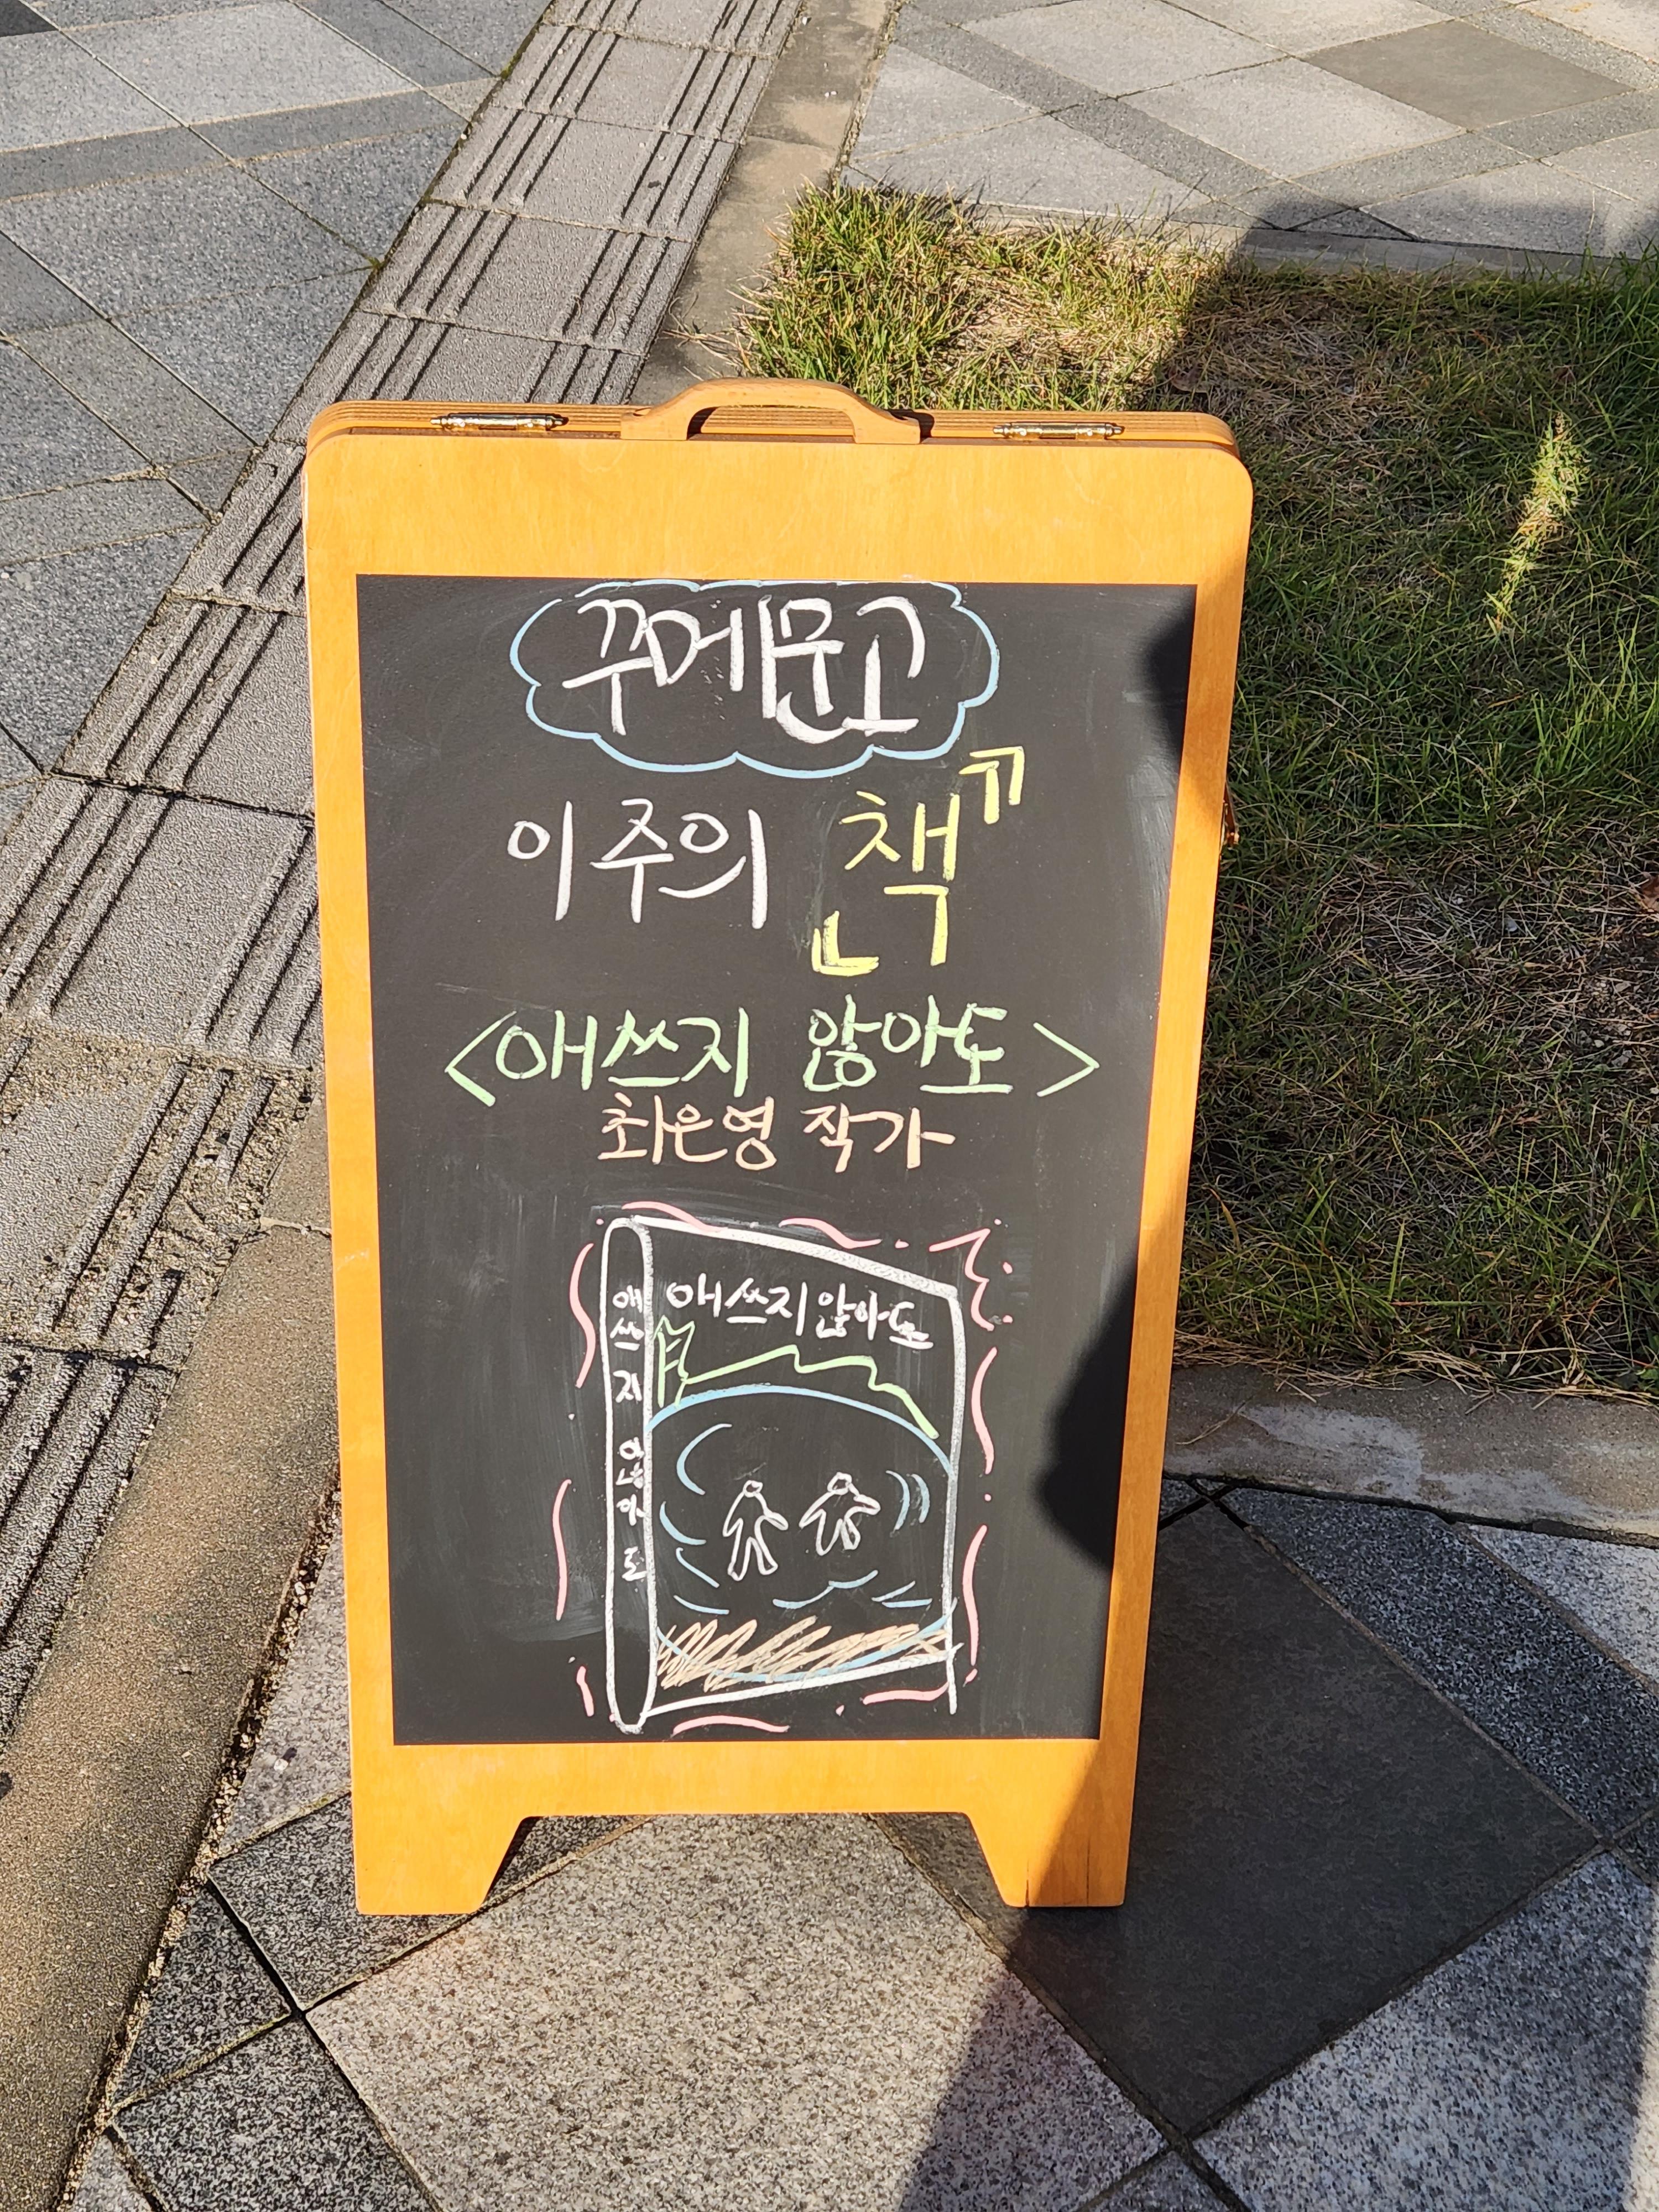 꾸메문고
이 주의 『책』
<애쓰지 않아도>
최은영 작가
애쓰지 않아도
애쓰지 않아도